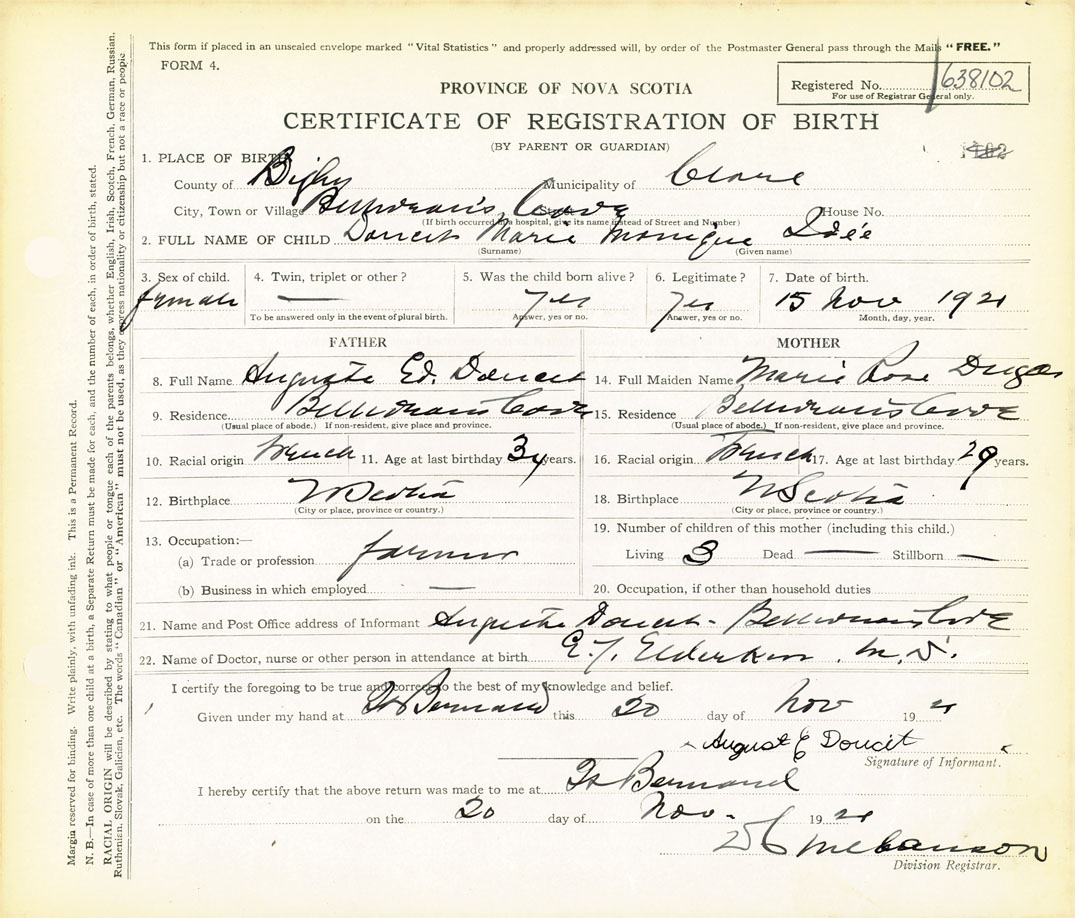 This form if placed in an unsealed envelope marked "Vital Statistics" and properly addressed will, by order of the Postmaster General pass through the Mails "FREE."
FORM 4.
Registered No. 638102
For use of Registrar General only.
PROVINCE OF NOVA SCOTIA
CERTIFICATE OF REGISTRATION OF BIRTH
(BY PARENT OR GUARDIAN)
1. PLACE OF BIRTH
County of Digby Municipality of Clare
City, Town or Village Belliveau's Cove Street House No.
(If birth occurred in a hospital, give its name instead of Street and Number)
2. FULL NAME OF CHILD Doucet Marie Monique
(Surname) (Given name)
3. Sex of child. 4. Twin, triplet or other? 5. Was the child born alive? 6. Legitimate? 7. Date of birth.
female — yes yes 15 Nov 1921
To be answered only in the event of plural birth. Answer, yes or no. Answer, yes or no. Month, day, year.
FATHER MOTHER
8. Full Name Auguste Ed. Doucet 14. Full Maiden Name Marie Rose Dugas
9. Residence Belliveau's Cove 15. Residence Belliveau's Cove
(Usual place of abode.) If non-resident, give place and province. (Usual place of abode.) If non-resident, give place and province.
10. Racial origin French 11. Age at last birthday years. 16. Racial origin French 17. Age at last birthday 29 years.
12. Birthplace N Scotia 18. Birthplace N Scotia
(City or place, province or country.) (City or place, province or country.)
13. Occupation:— 19. Number of children of this mother (including this child.)
(a) Trade or profession farmer Living 3 Dead — Stillborn —
(b) Business in which employed — 20. Occupation, if other than household duties
21. Name and Post Office address of Informant Auguste Doucet - Belliveau's Cove
22. Name of Doctor, nurse or other person in attendance at birth Elderkin M.D.
I certify the foregoing to be true and correct to the best of my knowledge and belief.
Given under my hand at St Bernard this 20 day of Nov 1921
August E Doucit
Signature of Informant.
I hereby certify that the above return was made to me at St Bernard
on the 20 day of Nov. 1921
Division Registrar.
Margin reserved for binding. Write plainly, with unfading ink. This is a Permanent Record.
N. B.—In case of more than one child at a birth, a Separate Return must be made for each, and the number of each, in order of birth, stated.
RACIAL ORIGIN will be described by stating to what people or tongue each of the parents belongs, whether English, Irish, Scotch, French, German, Russian,
Ruthenian, Slovak, Galician, etc. The words "Canadian" or "American" must not be used, as they express nationality or citizenship but not a race or people